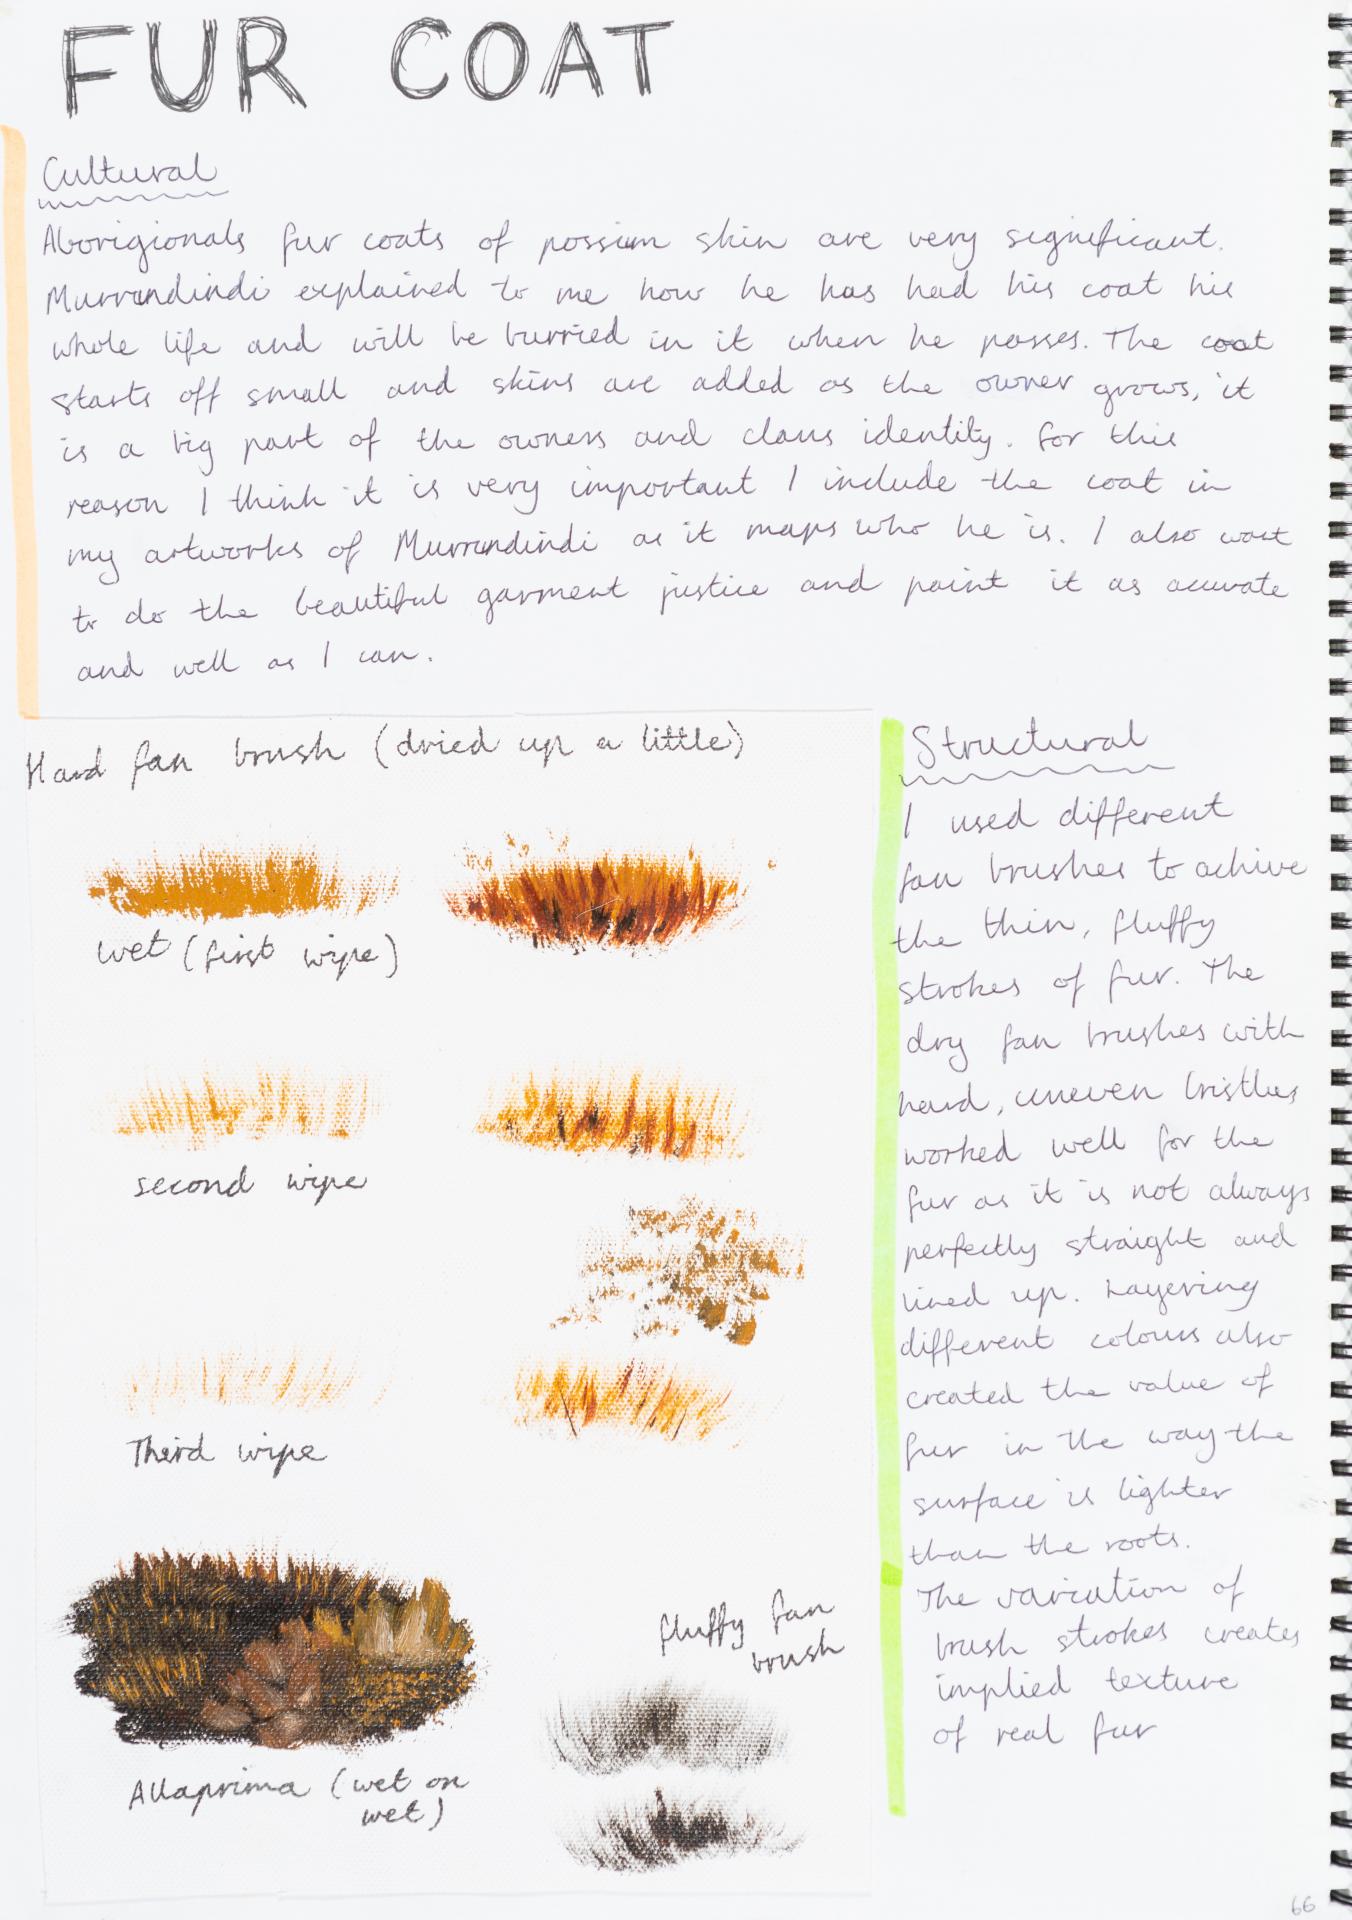 FUR COAT
Cultural
Aborigionals fur coats of possum skin are very significant.
Murrundindi explained to me how he has had his coat his
whole life and will be burried in it when he passes. The coat
starts off small and skins are added as the owner grows, it
is a big part of the owners and clans identity. For this
reason I think it is very important I include the coat in
my artworks of Murrundindi as it maps who he is. I also want
to do the beautiful garment justice and paint it as accurate
and well as I can.
Hard fan brush (dried up a little)
wet (first wipe)
second wipe
Third wipe
Allaprima (wet on
wet)
fluffy fan
brush
Structural
I used different
fan brushes to achive
the thin, fluffy
strokes of fur. The
dry fan brushes with
hard, uneven bristles
worked well for the
fur as it is not always
perfectly straight and
lined up. Layering
different colours also
created the value of
fur in the way the
surface is lighter
than the roots.
The variation of
brush strokes creates
implied texture
of real fur
66